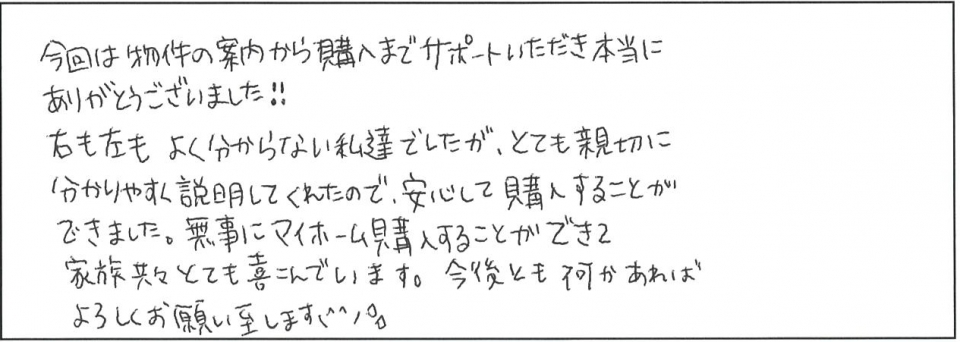 今回は物件の案内から購入までサポートいただき本当に
ありがとうございました!!
右も左もよく分からない私達でしたが、とても親切に
分かりやすく説明してくれたので、安心して購入することが
できました。無事にマイホーム購入することができて
家族共々とても喜こんでいます。今後とも何かあれば
よろしくお願い至します^^♪